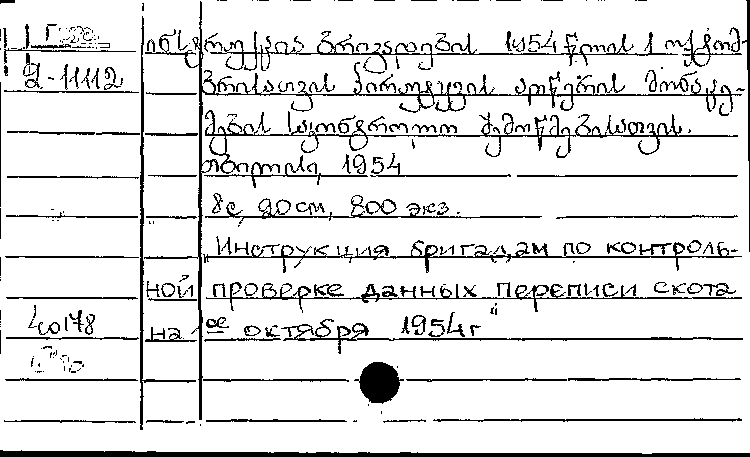 ინსტრუქცია ბრიგადების 1954 წლის 1 ოქტომ-
2-11112
ბრისათვის პირუტყვის აღწერის მონაცე-
მების საკონტროლო შემოწმებისათვის.
თბილისი, 1954
8с, 20 см, 800 экз.
„Инструкция бригадам по контроль-
ной проверке данных переписи скота
на 1ое октября 1954г“